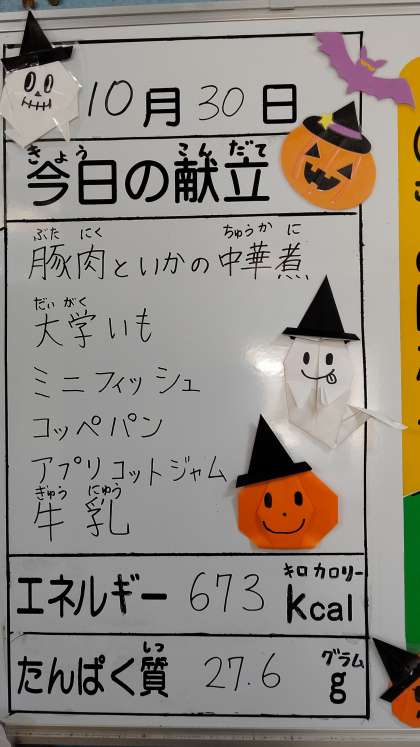 10月30日
きょう こんだて
今日の献立
ぶた にく ちゅう か に
豚肉といかの中華煮
だい がく
大学いも
ミニフィッシュ
コッペパン
アプリコットジャム
ぎゅう にゅう
牛乳
キロカロリー
エネルギー 673 kcal
しつ グラム
たんぱく質 27.6 g